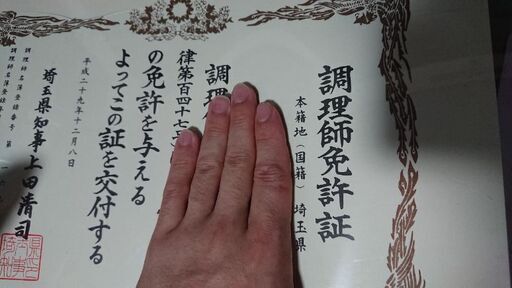 調理師免許証
本籍地（国籍）埼玉県
調理
律第百四十七
の免許を与える
よってこの証を交付する
平成二十九年十二月八日
埼玉県知事上田清司
調理師名簿登録番号 第
調理師名簿登録年